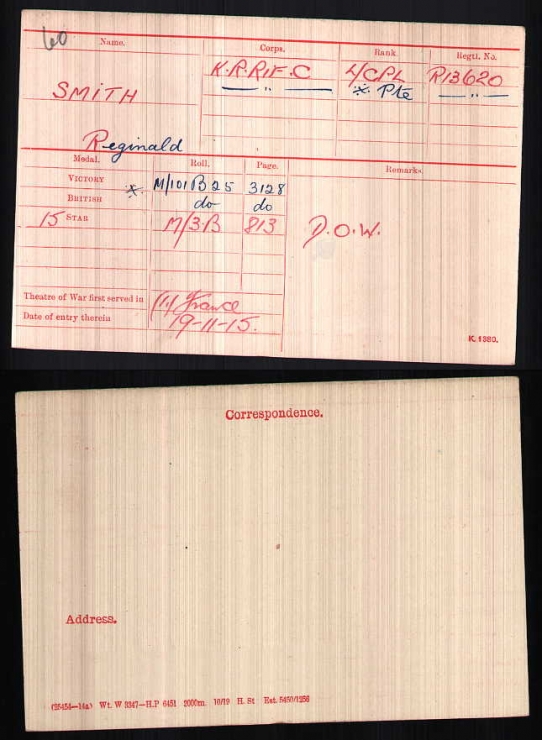 60
Name. Corps. Rank. Regtl. No.
SMITH K.R.Rif.C L/CPL R13620
— " — * Pte — " —
Reginald
Medal. Roll. Page. Remarks.
VICTORY * M/101B25 3128
BRITISH do do
15 STAR M/3B 813 D.O.W.
Theatre of War first served in (1) France
Date of entry therein 19-11-15.
K. 1380.
Correspondence.
Address.
(35454—14a) Wt. W 3347—H.P 6451 2000m. 10/19 H. St Est. 5460/1256